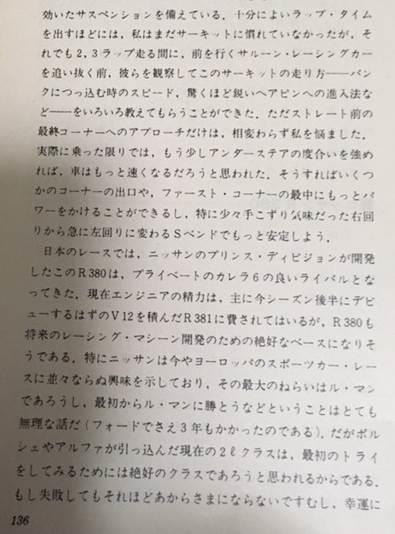 効いたサスペンションを備えている．十分によいラップ・タイム
を出すほどには，私はまだサーキットに慣れていなかったが，そ
れでも2，3ラップ走る間に，前を行くサルーン・レーシングカー
を追い抜く前，彼らを観察してこのサーキットの走り方――バン
クにつっ込む時のスピード，驚くほど鋭いヘアピンへの進入法な
ど――をいろいろ教えてもらうことができた．ただストレート前の
最終コーナーへのアプローチだけは，相変わらず私を悩ました．
実際に乗った限りでは，もう少しアンダーステアの度合いを強め
れば，車はもっと速くなるだろうと思われた．そうすればいくつ
かのコーナーの出口や，ファースト・コーナーの最中にもっとパ
ワーをかけることができるし，特に少々手こずり気味だった右回
りから急に左回りに変わるSベンドでもっと安定しよう．
日本のレースでは，ニッサンのプリンス・ディビジョンが開発
したこのR380は，プライベートのカレラ6の良いライバルとな
ってきた．現在エンジニアの精力は，主に今シーズン後半にデビ
ューするはずのV12を積んだR381に費されてはいるが，R380も
将来のレーシング・マシーン開発のための絶好なベースになりそ
うである．特にニッサンは今やヨーロッパのスポーツカー・レー
スに並々ならぬ興味を示しており，その最大のねらいはル・マン
であろうし，最初からル・マンに勝とうなどということはとても
無理な話だ（フォードでさえ3年もかかったのである）．だがポル
シェやアルファが引っ込んだ現在の2ℓクラスは，最初のトライ
をしてみるためには絶好のクラスであろうと思われるからである．
もし失敗してもそれほどあからさまにならないですむし，幸運に
136